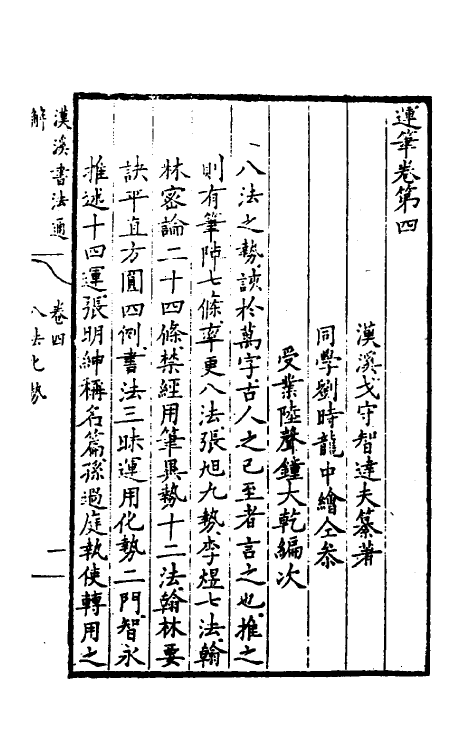 運筆卷第四
漢溪戈守智達夫纂著
同學劉時龍中繪仝叅
受業陸聲鍾大乾編次
八法之勢該於萬字古人之已至者言之也推之
則有筆陣七條率更八法張旭九勢李煜七法翰
林密論二十四條禁經用筆異勢十二法翰林要
訣平直方圓四例書法三昧運用化勢二門智永
推述十四運張明紳稱名篇孫過庭執使轉用之
漢溪書法通解
卷四
八法化勢
一